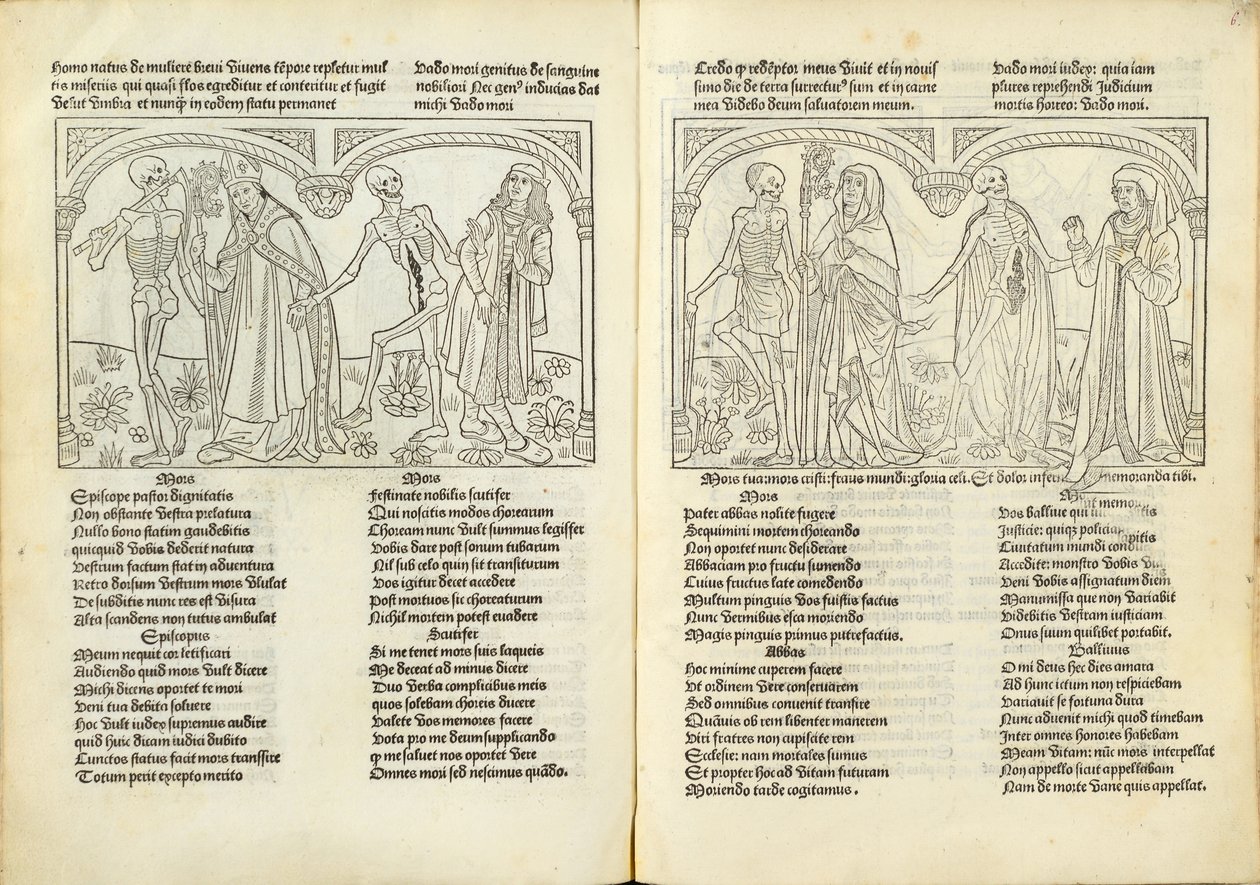 Homo natus de muliere brevi vivens tēpore repletur mul
tis miseriis qui quasi flos egreditur et conteritur et fugit
velut umbra et nunqʒ in eodem statu permanet
Vado mori genitus de sanguine
nobiliori Nec genꝰ inducias dat
michi vado mori
Mors
Episcope pastor dignitatis
Non obstante vestra prelatura
Nullo bono statim gaudebitis
quicquid vobis dederit natura
Vestrum factum stat in adventura
Retro dorsum vestrum mors ululat
De subditis nunc res est visura
Alta scandens non tutus ambulat
Episcopus
Meum nequit cor letificari
Audiendo quid mors vult dicere
Michi dicens oportet te mori
Veni tua debita soluere
Hoc vult iudex supremus audire
quid huic dicam iudici dubito
Cunctos status facit mors transsire
Totum perit excepto merito
Mors
Festinate nobilis scutifer
Qui noscitis modos chorearum
Choream nunc vult summus legiffer
Vobis dare post sonum tubarum
Nil sub celo quin sit transiturum
Vos igitur decet accedere
Post mortuos sic choreaturum
Nichil mortem potest evadere
Scutifer
Si me tenet mors suis laqueis
Me deceat ad minus dicere
Duo verba complicibus meis
quos solebam choreis ducere
Valete vos memores facere
Vota pro me deum supplicando
ꝙ me saluet nos oportet vere
Omnes mori sed nescimus quādo.
6.
Credo ꝙ redēptor meus vivit et in novis
simo die de terra surrecturꝰ sum et in carne
mea videbo deum saluatorem meum.
Vado mori iudex: quia iam
plures reprehendi Judicium
mortis horreo: vado mori.
Mors tua: mors cristi: fraus mundi: gloria celi. Et dolor inferni memoranda tibi.
Mors
Pater abbas nolite fugere
Sequimini mortem choreando
Non oportet nunc desiderare
Abbaciam pro fructu sumendo
Cuius fructus late comedendo
Multum pinguis vos fuistis factus
Nunc vermibus esca moriendo
Magis pinguis primus putrefactus.
Abbas
Hoc minime cuperem facere
Ut ordinem vere conservarem
Sed omnibus convenit transire
Quāuis ob rem libenter manerem
Viri fratres non cupiscite rem
Ecclesie: nam mortales sumus
Et propter hoc ad vitam futuram
Moriendo tarde cogitamus.
Vos ballive qui
Justicie: quiqʒ
Cunctatum mundi
Accedite: monstro vobis
Veni vobis assignatum diem
Manumissa que non variabit
Videbitis vestram iusticiam
Onus suum quilibet portabit.
Ballivus
O mi deus hec dies amara
Ad hunc ictum non respiciebam
Variavit se fortuna dura
Nunc advenit michi quod timebam
Inter omnes honores habebam
Meam vitam: nūc mors interpellat
Non appello sicut appellabam
Nam de morte vane quis appellat.